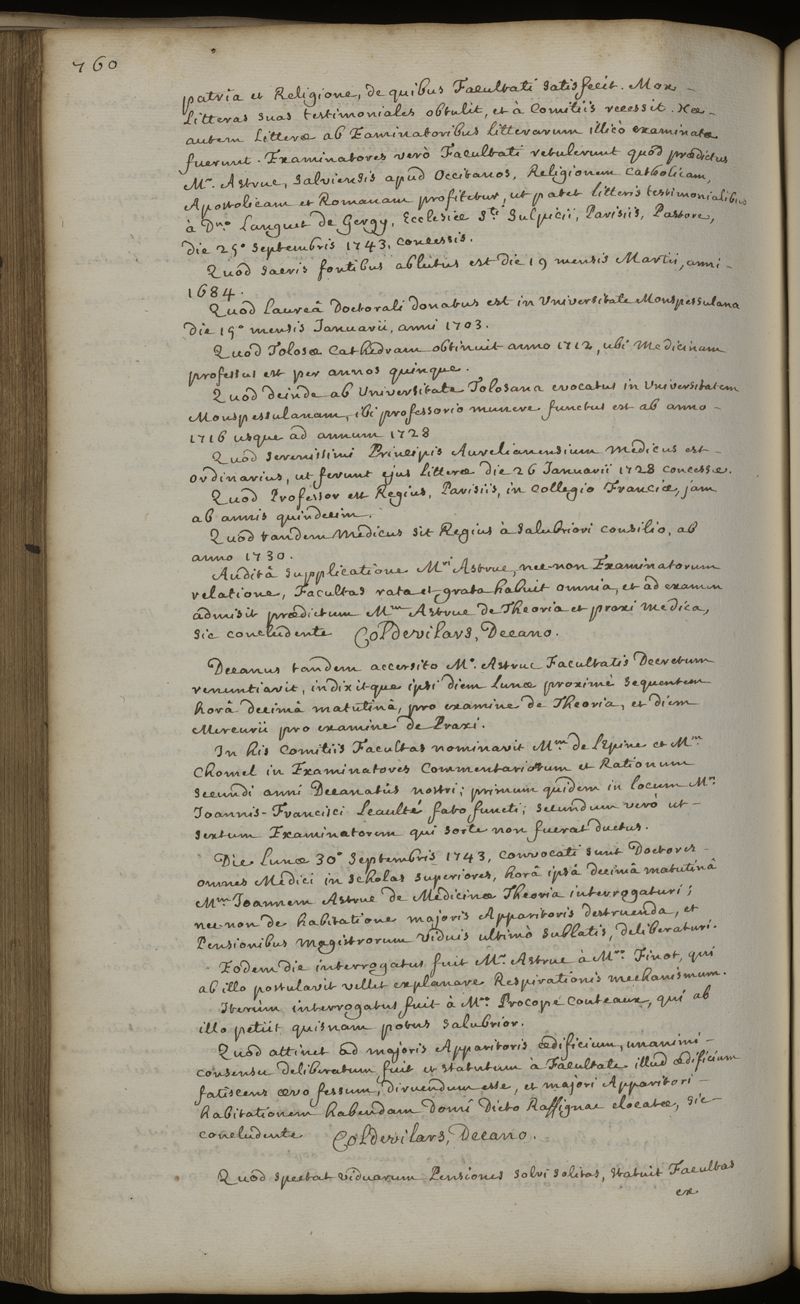 760
patria et Religione, de quibus Facultati satisfecit. Mox -
Litteras suas testimoniales obtulit, et à Comitiis recessit. Hæ -
autem Litteræ ab Examinatoribus litterarum illicò examinatæ
fuerunt. Examinatores verò Facultati retulerunt quòd prædictus
Mr. Astruc, Salviensis apud Occitanos, Religionem Catholicam,
Apostolicam et Romanam profitetur, ut patet litteris testimonialibus
à Dno Languet de Gergy, Ecclesiæ Sti Sulpicii, Parisiis, Pastore,
die 25a Septembris 1743, concessis.
Quòd sacris fontibus ablutus est die 19 mensis Martii, anni -
1684.
Quòd Laureâ Doctorali donatus est in Universitate Monspessulana
die 19a mensis Januarii, anni 1703.
Quòd Tolosæ Cathedram obtinuit anno 1712, ubi Medicinam
professus est per annos quinque.
Quòd deinde ab Universitate Tolosana evocatus in Universitatem
Monspessulanam, ibi professorio munere functus est ab anno -
1716 usque ad annum 1728
Quòd Serenissimi Principis Aurelianensium Medicus est -
Ordinarius, ut ferunt ejus Litteræ die 26 Januarii 1728 concessæ.
Quòd Professor est Regius, Parisiis, in Collegio Franciæ, jam
ab annis quindecim.
Quòd tandem Medicus sit Regius à Salubriori consilio, ab
anno 1730.
Auditâ supplicatione Mri Astruc, nec-non Examinatorum
relatione, Facultas rata et grata habuit omnia, et ad examen
admisit prædictum Mum Astruc de Theoria et praxi medica,
sic concludente Col De Vilars, Decano.
Decanus tandem accersito Mo. Astruc Facultatis Decretum
renuntiavit, indixitque ipsi diem Lunæ proximè sequentem
horâ decimâ matutinâ, pro examine de Theoria, et diem
Mercurii pro examine de Praxi.
In his Comitiis Facultas nominavit Mum de l'Epine et Mum
Chomel in Examinatores Commentariorum et Rationum
secundi anni Decanatûs nostri; primum quidem in locum Mri
Joannis-Francisci Leaulté fato functi; secundum verò ut -
sextum Examinatorem qui sorte non fuerat ductus.
Die Lunæ 30a Septembris 1743, convocati sunt Doctores -
omnes Medici in Scholas superiores, horâ ipsâ decimâ matutinâ
Mum Joannem Astruc de Medicinæ Theoria interrogaturi;
nec-non de habitatione majoris Apparitoris destruenda, et
Pensionibus Magistrorum Viduis ultimò sublatis, deliberaturi.
Eodem die interrogatus fuit Mr. Astruc à Mro Finot, qui
ab illo postulavit vellet explanare Respirationis mechanismum.
Iterùm interrogatus fuit à Mro Procope Couteaux, qui ab
illo petiit quisnam potus salubrior.
Quòd attinet ad majoris Apparitoris ædificium, unanimi -
consensu deliberatum fuit et statutum à Facultate illud ædificium
fatiscens ævo fessum, diruendum esse, et majori Apparitori -
habitationem habendam domi Dicto Raffignac elocatæ, sic -
concludente Col De Vilars, Decano.
Quòd spectat viduarum Pensiones solvi solitas, statuit Facultas
ex